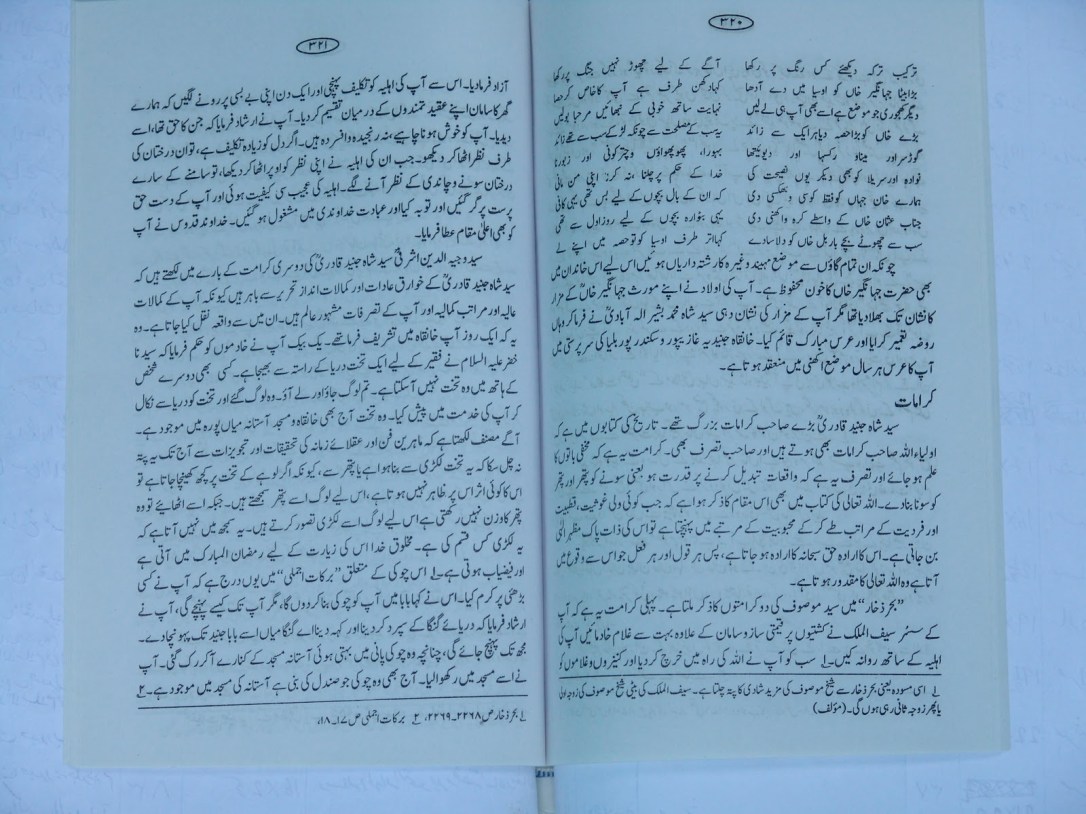 ۳۲۰
ترکیب ترکہ دیکھئے کس رنگ پر رکھا
آگے کے لیے چھوڑ نہیں جنگ پر رکھا
بڑا بیٹا جہانگیر خاں کو اوسیا میں دے آدھا
کہا دکھن طرف ہے آپ کا خاص کر حصا
دیگر کھجوری جو موضع ہے اسے بھی آپ ہی لے لیں
نہایت ساتھ خوبی کے نبھائیں مرحبا بولیں
بڑے خاں کو بڑا حصہ دیا ہر ایک سے زائد
یہ سب کے مصلحت سے چونکہ لڑکے سب سے تھے زائد
گوڑسر اور میناو رکسہا اور دیویتھا
بہورا، پھوپھواؤں وچترکونی اور زبورنا
نوادہ اور سریلا کو بھی دیگر یوں نصیحت کی
خدا کے حکم پر چلنا، نہ کرنا اپنی من مانی
ہمارے خان جہاں کو فقط کوسی دی
کہ ان کے بال بچوں کے لیے بس تھی یہی کافی
جناب عثمان خاں کے واسطے کرہ واکھنی دی
یہی بٹوارہ بچوں کے لیے روز اول سے تھی
سب سے چھوٹے بچے بار بل خاں کو دلاسا دے
کہا اتر طرف اوسیا کو تو حصہ میں اپنے لے
چونکہ ان تمام گاؤں سے موضع مہیند وغیرہ کا رشتہ داریاں ہوئیں اس لیے اس خاندان میں
بھی حضرت جہانگیر خاں کا خون محفوظ ہے۔ آپ کی اولاد نے اپنے مورث جہانگیر خاںؒ کے مزار
کا نشان تک بھلا دیا تھا مگر آپ کے مزار کی نشان دہی سید شاہ محمد بشیر الہ آبادیؒ نے فرما کر وہاں
روضہ تعمیر کرایا اور عرس مبارک قائم کیا۔ خانقاہ جنیدیہ غازیپور و سکندر پور بلیا کی سرپرستی میں
آپ کا عرس ہر سال موضع اکھنی میں منعقد ہوتا ہے۔
کرامات
سید شاہ جنید قادریؒ بڑے صاحب کرامات بزرگ تھے۔ تاریخ کی کتابوں میں ہے کہ
اولیاء اللہ صاحب کرامات بھی ہوتے ہیں اور صاحب تصرف بھی۔ کرامت یہ ہے کہ مخفی باتوں کا
علم ہو جائے اور تصرف یہ ہے کہ واقعات تبدیل کرنے پر قدرت ہو یعنی سونے کو پتھر اور پتھر
کو سونا بنا دے۔ اللہ تعالیٰ کی کتاب میں بھی اس مقام کا ذکر ہوا ہے کہ جب کوئی ولی غوثیت، قطبیت
اور فردیت کے مراتب طے کر کے محبوبیت کے مرتبے میں پہنچتا ہے تو اس کی ذات پاک مظہر الٰہی
بن جاتی ہے۔ اس کا ارادہ حق سبحانہ کا ارادہ ہو جاتا ہے، پس ہر قول اور ہر فعل جو اس سے وقوع میں
آتا ہے وہ اللہ تعالیٰ کا مقدور ہوتا ہے۔
”بحر ذخار“ میں سید موصوف کی دو کرامتوں کا ذکر ملتا ہے۔ پہلی کرامت یہ ہے کہ آپ
کے سسر سیف الملک نے کشتیوں پر قیمتی ساز و سامان کے علاوہ بہت سے غلام خادمائیں آپ کی
اہلیہ کے ساتھ روانہ کیں۔۱ سب کو آپ نے اللہ کی راہ میں خرچ کر دیا اور کنیزوں و غلاموں کو
۱ اسی مسودہ یعنی بحر ذخار سے شیخ موصوف کی مزید شادی کا پتہ چلتا ہے۔ سیف الملک کی بیٹی شیخ موصوف کی زوجہ اولیٰ
یا پھر زوجہ ثانی رہی ہوں گی۔ (مؤلف)
۳۲۱
آزاد فرما دیا۔ اس سے آپ کی اہلیہ کو تکلیف پہنچی اور ایک دن اپنی بے بسی پر رونے لگیں کہ ہمارے
گھر کا سامان اپنے عقیدتمندوں کے درمیان تقسیم کر دیا۔ آپ نے ارشاد فرمایا کہ جن کا حق تھا، اسے
دیدیا۔ آپ کو خوش ہونا چاہیے، نہ رنجیدہ و افسردہ ہیں۔ اگر دل کو زیادہ تکلیف ہے، تو ان درختان کی
طرف نظر اٹھا کر دیکھو۔ جب ان کی اہلیہ نے اپنی نظر کو اوپر اٹھا کر دیکھا، تو سامنے کے سارے
درختان سونے و چاندی کے نظر آنے لگے۔ اہلیہ کی عجیب سی کیفیت ہوئی اور آپ کے دست حق
پرست پر گر گئیں اور توبہ کیا اور عبادت خداوندی میں مشغول ہو گئیں۔ خداوند قدوس نے آپ
کو بھی اعلیٰ مقام عطا فرمایا۔
سید وجیہ الدین اشرفیؒ سید شاہ جنید قادریؒ کی دوسری کرامت کے بارے میں لکھتے ہیں کہ
سید شاہ جنید قادریؒ کے خوارق عادات اور کمالات انداز تحریر سے باہر ہیں کیونکہ آپ کے کمالات
عالیہ اور مراتب کمالیہ اور آپ کے تصرفات مشہور عالم ہیں۔ ان میں سے واقعہ نقل کیا جاتا ہے۔ وہ
یہ کہ ایک روز آپ خانقاہ میں تشریف فرما تھے۔ یک بیک آپ نے خادموں کو حکم فرمایا کہ سیدنا
خضر علیہ السلام نے فقیر کے لیے ایک تخت دریا کے راستہ سے بھیجا ہے۔ کسی بھی دوسرے شخص
کے ہاتھ میں وہ تخت نہیں آسکتا ہے۔ تم لوگ جاؤ اور لے آؤ۔ وہ لوگ گئے اور تخت کو دریا سے نکال
کر آپ کی خدمت میں پیش کیا۔ وہ تخت آج بھی خانقاہ و مسجد آستانہ میاں پورہ میں موجود ہے۔
آگے مصنف لکھتا ہے کہ ماہرین فن اور عقلائے زمانہ کی تحقیقات اور تجویزات سے آج تک یہ پتہ
نہ چل سکا کہ یہ تخت لکڑی سے بنا ہوا ہے یا پتھر سے، کیونکہ اگر لوہے کے تخت پر کچھ کھینچا جاتا ہے تو
اس کا کوئی اثر اس پر ظاہر نہیں ہوتا ہے، اس لیے لوگ اسے پتھر سمجھتے ہیں۔ جبکہ اسے اٹھائیے تو وہ
پتھر کا وزن نہیں رکھتی ہے اس لیے لوگ اسے لکڑی تصور کرتے ہیں۔ یہ سمجھ میں نہیں آتا ہے کہ
یہ لکڑی کس قسم کی ہے۔ مخلوق خدا اس کی زیارت کے لیے رمضان المبارک میں آتی ہے
اور فیضیاب ہوتی ہے۔۱ اس چوکی کے متعلق ”برکات اجملی“ میں یوں درج ہے کہ آپ نے کسی
بڑھئی پر کرم کیا۔ اس نے کہا بابا میں آپ کو چوکی بنا کر دوں گا، مگر آپ تک کیسے پہنچے گی، آپ نے
ارشاد فرمایا کہ دریائے گنگا کے سپرد کر دینا اور کہہ دینا اے گنگا میاں اسے بابا جنید تک پہونچا دے۔
مجھ تک پہنچ جائے گی، چنانچہ وہ چوکی پانی میں بہتی ہوئی آستانہ مسجد کے کنارے آ کر رک گئی۔ آپ
نے اسے مسجد میں رکھوا لیا۔ آج بھی وہ چوکی جو صندل کی بنی ہے آستانہ کی مسجد میں موجود ہے۔۲
۱ بحر ذخار ص ۲۲۶۸۔۲۲۶۹، ۲ برکات اجملی ص ۱۷۔۱۸،